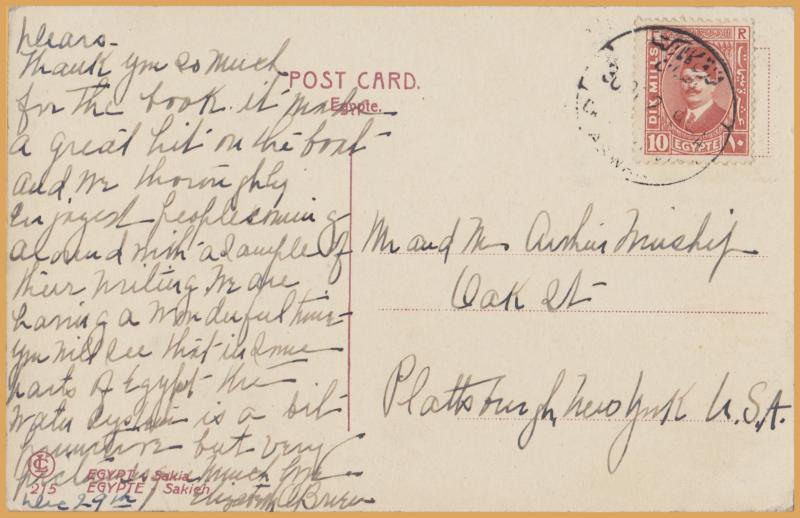 Dears-
Thank you so much
for the book it made
a great hit on the boat
and we thoroughly
enjoyed people coming
around with a sample of
their writing. We are
having a wonderful time
you will see that in some
parts of Egypt the
water system is a bit
primitive but very
Much love
Dec 29th
POST CARD.
Egypte.
215
EGYPT - Sakia
EGYPTE - Sakieh
Mr and Mrs Arthur
Oak St
Plattsburgh, New York U.S.A.
DIX MILLS
10
EGYPTE
١٠
ASWAN